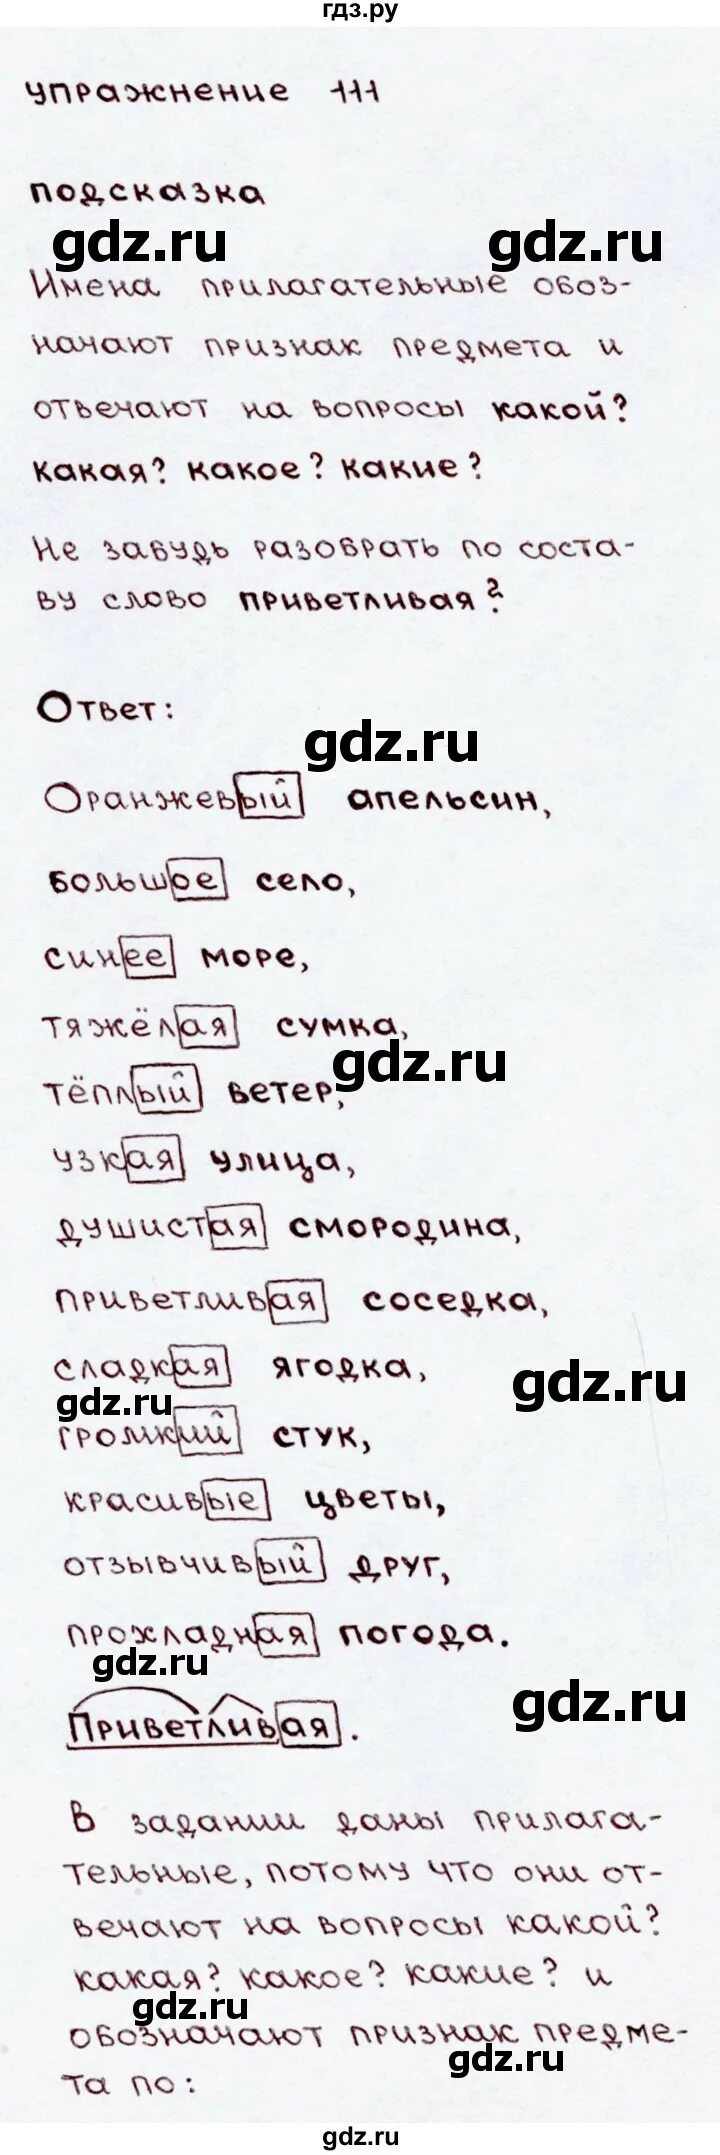 гдз.ру
упражнение 111
подсказка
gdz.ru gdz.ru
Имена прилагательные обоз-
начают признак предмета и
отвечают на вопросы какой?
какая? какое? какие?
Не забудь разобрать по соста-
ву слово приветливая?
Ответ:
gdz.ru
Оранжевый апельсин,
большое село,
синее море,
тяжёлая сумка,
gdz.ru
тёплый ветер,
узкая улица,
душистая смородина,
приветливая соседка,
сладкая ягодка,
gdz.ru
gdz.ru
громкий стук,
красивые цветы,
отзывчивый друг,
прохладная погода.
gdz.ru
gdz.ru
Приветливая.
В задании даны прилага-
тельные, потому что они от-
вечают на вопросы какой?
какая? какое? какие? и
gdz.ru
обозначают признак предме-
gdz.ru
та по:
gdz.ru